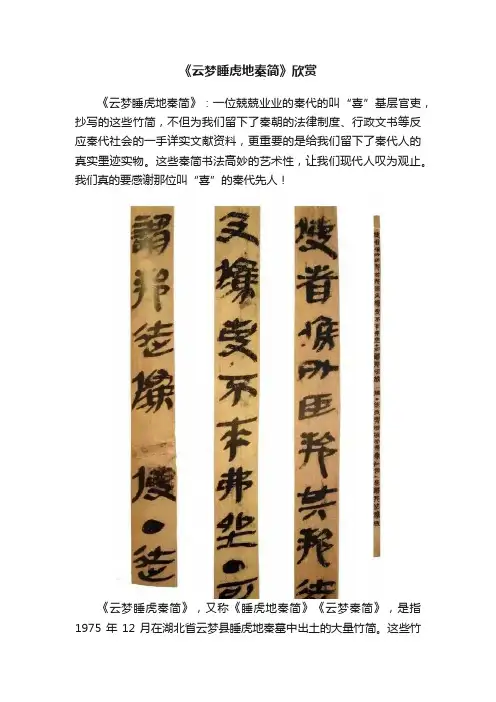 《云梦睡虎地秦简》欣赏
《云梦睡虎地秦简》:一位兢兢业业的秦代的叫“喜”基层官吏,
抄写的这些竹简,不但为我们留下了秦朝的法律制度、行政文书等反
应秦代社会的一手详实文献资料,更重要的是给我们留下了秦代人的
真实墨迹实物。这些秦简书法高妙的艺术性,让我们现代人叹为观止。
我们真的要感谢那位叫“喜”的秦代先人!
使者侯外臣邦其邦徒
及偽吏不來弗坐●可
謂邦徒偽使●徒
《云梦睡虎秦简》,又称《睡虎地秦简》《云梦秦简》,是指
1975 年 12 月在湖北省云梦县睡虎地秦墓中出土的大量竹简。这些竹